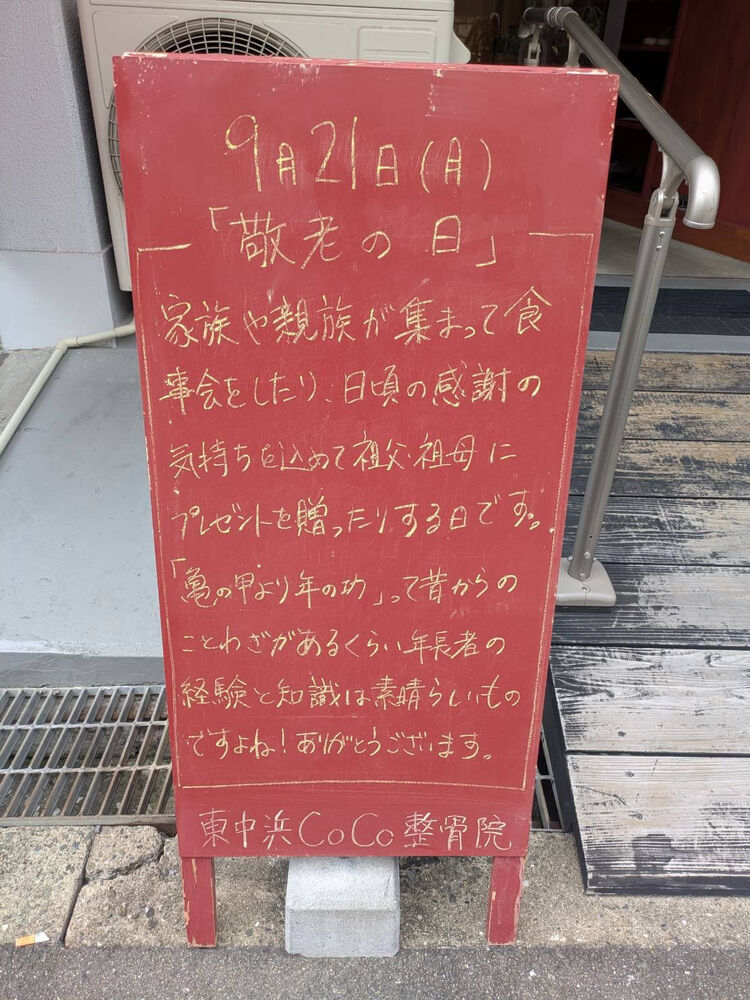 9月21日(月)
「敬老の日」
家族や親族が集まって食
事会をしたり、日頃の感謝の
気持ちを込めて祖父・祖母に
プレゼントを贈ったりする日です。
「亀の甲より年の功」って昔からの
ことわざがあるくらい年長者の
経験と知識は素晴らしいもの
ですよね!ありがとうございます。
東中浜CoCo整骨院